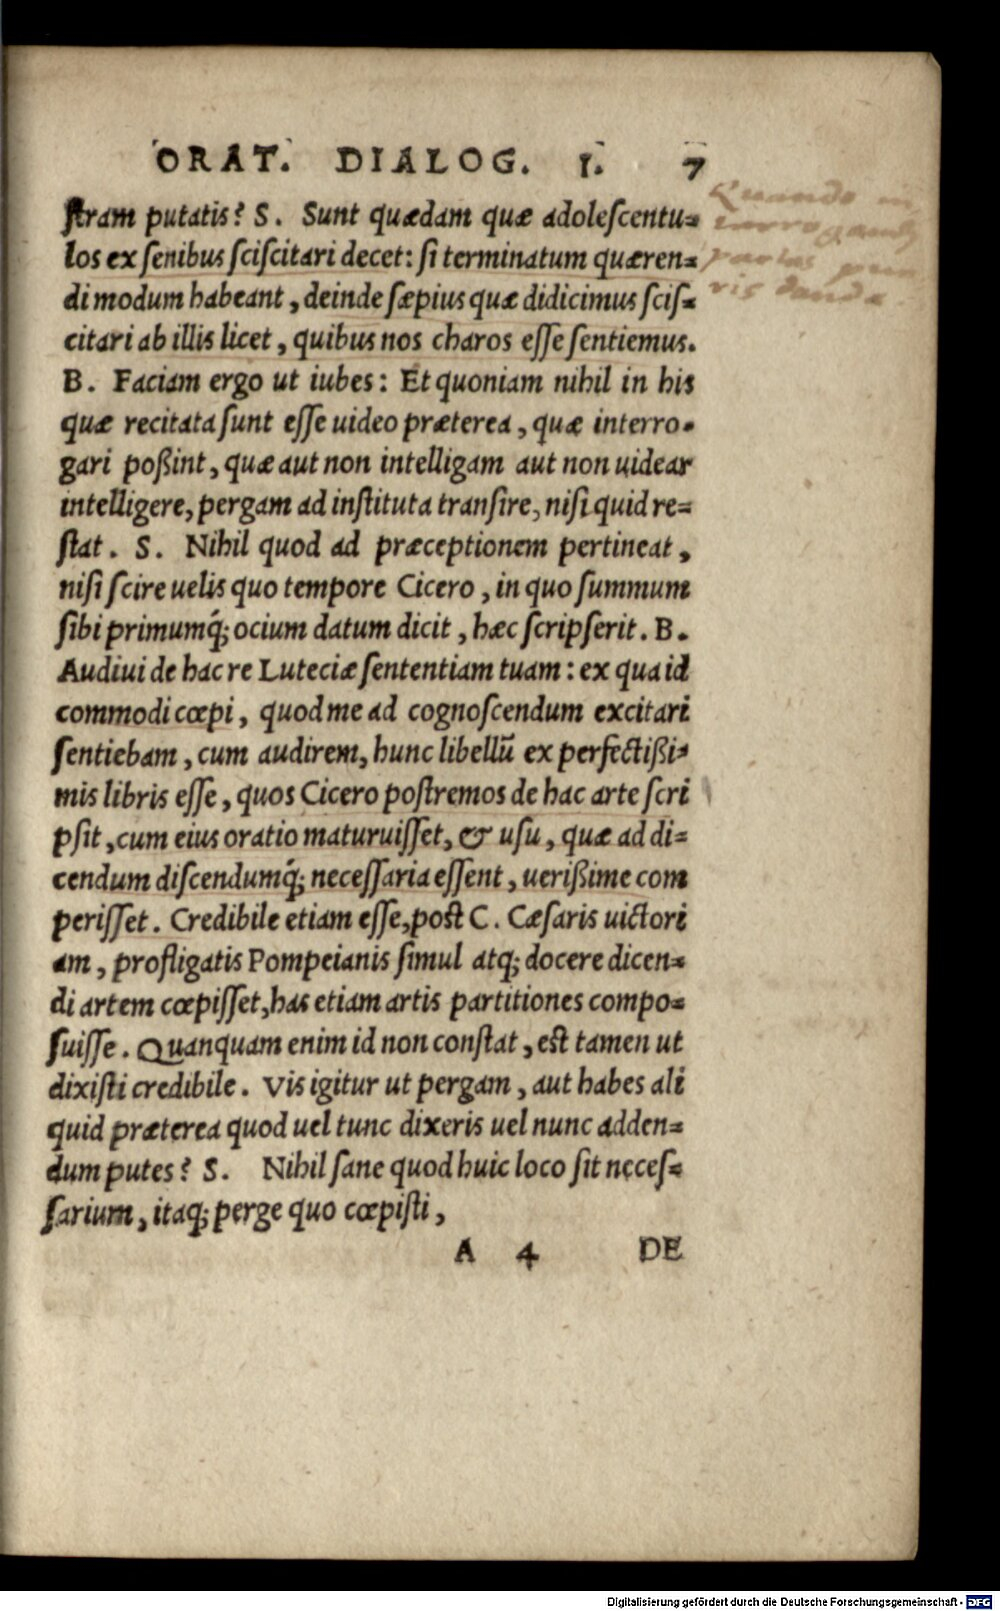 ORAT. DIALOG. I. 7
stram putatis? S. Sunt quædam quæ adolescentu=
los ex senibus sciscitari decet: si terminatum quæren=
di modum habeant, deinde sæpius quæ didicimus scis=
citari ab illis licet, quibus nos charos esse sentiemus.
B. Faciam ergo ut iubes: Et quoniam nihil in his
quæ recitata sunt esse uideo præterea, quæ interro=
gari poßint, quæ aut non intelligam aut non uidear
intelligere, pergam ad instituta transire, nisi quid re=
stat. S. Nihil quod ad præceptionem pertineat,
nisi scire uelis quo tempore Cicero, in quo summum
sibi primumq́; ocium datum dicit, hæc scripserit. B.
Audiui de hac re Luteciæ sententiam tuam: ex qua id
commodi cœpi, quod me ad cognoscendum excitari
sentiebam, cum audirem, hunc libellũ ex perfectißi=
mis libris esse, quos Cicero postremos de hac arte scri
psit, cum eius oratio maturuisset, & usu, quæ ad di=
cendum discendumq́; necessaria essent, uerißime com
perisset. Credibile etiam esse, post C. Cæsaris uictori
am, profligatis Pompeianis simul atq; docere dicen=
di artem cœpisset, has etiam artis partitiones compo=
suisse. Quanquam enim id non constat, est tamen ut
dixisti credibile. Vis igitur ut pergam, aut habes ali
quid præterea quod uel tunc dixeris uel nunc adden=
dum putes? S. Nihil sane quod huic loco sit neces=
sarium, itaq; perge quo cœpisti,
A 4 DE
Quando
Digitalisierung gefördert durch die Deutsche Forschungsgemeinschaft - DFG